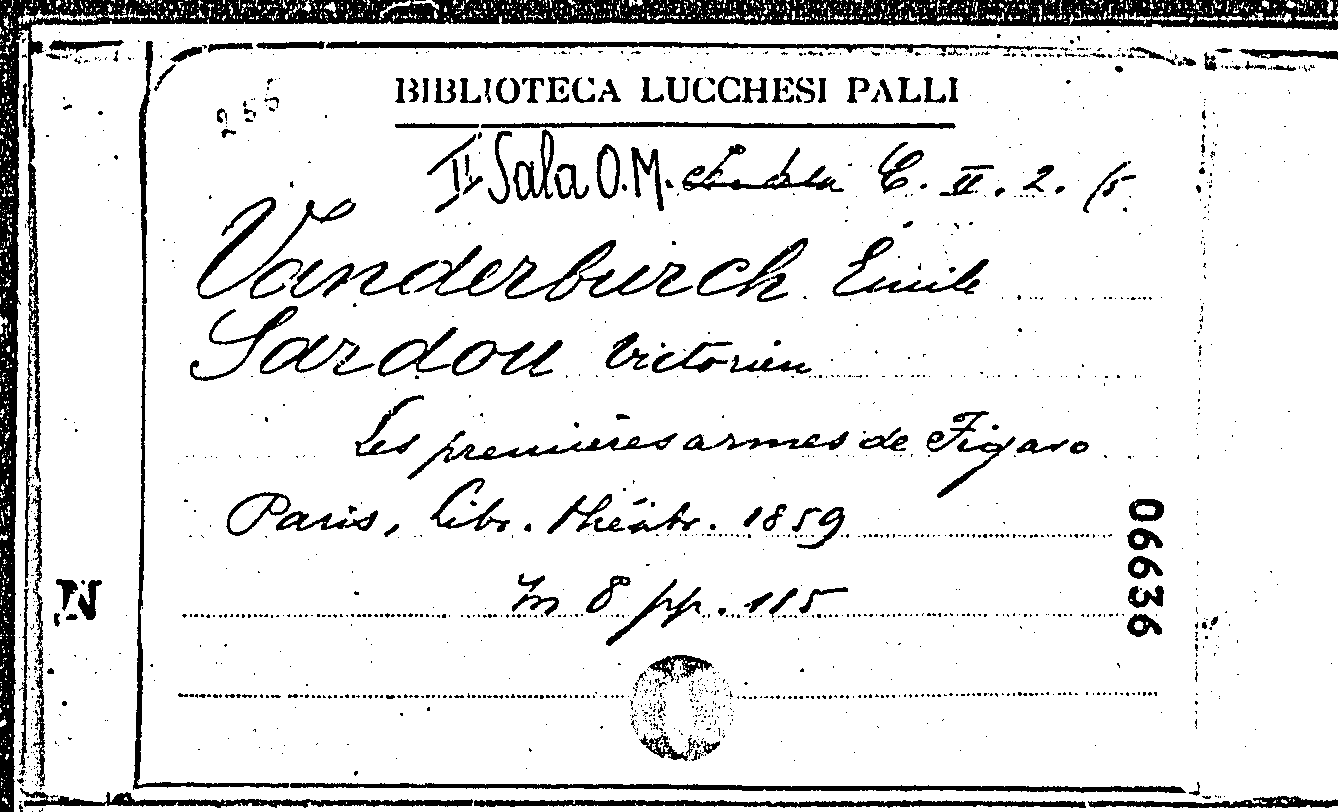 BIBLIOTECA LUCCHESI PALLI
255
II Sala O.M. C. II. 2. 15.
Vanderburch Emile
Sardou Victorien
Les premières armes de Figaro
Paris, Libr. théâtr. 1859
In 8 pp. 115
06636
N